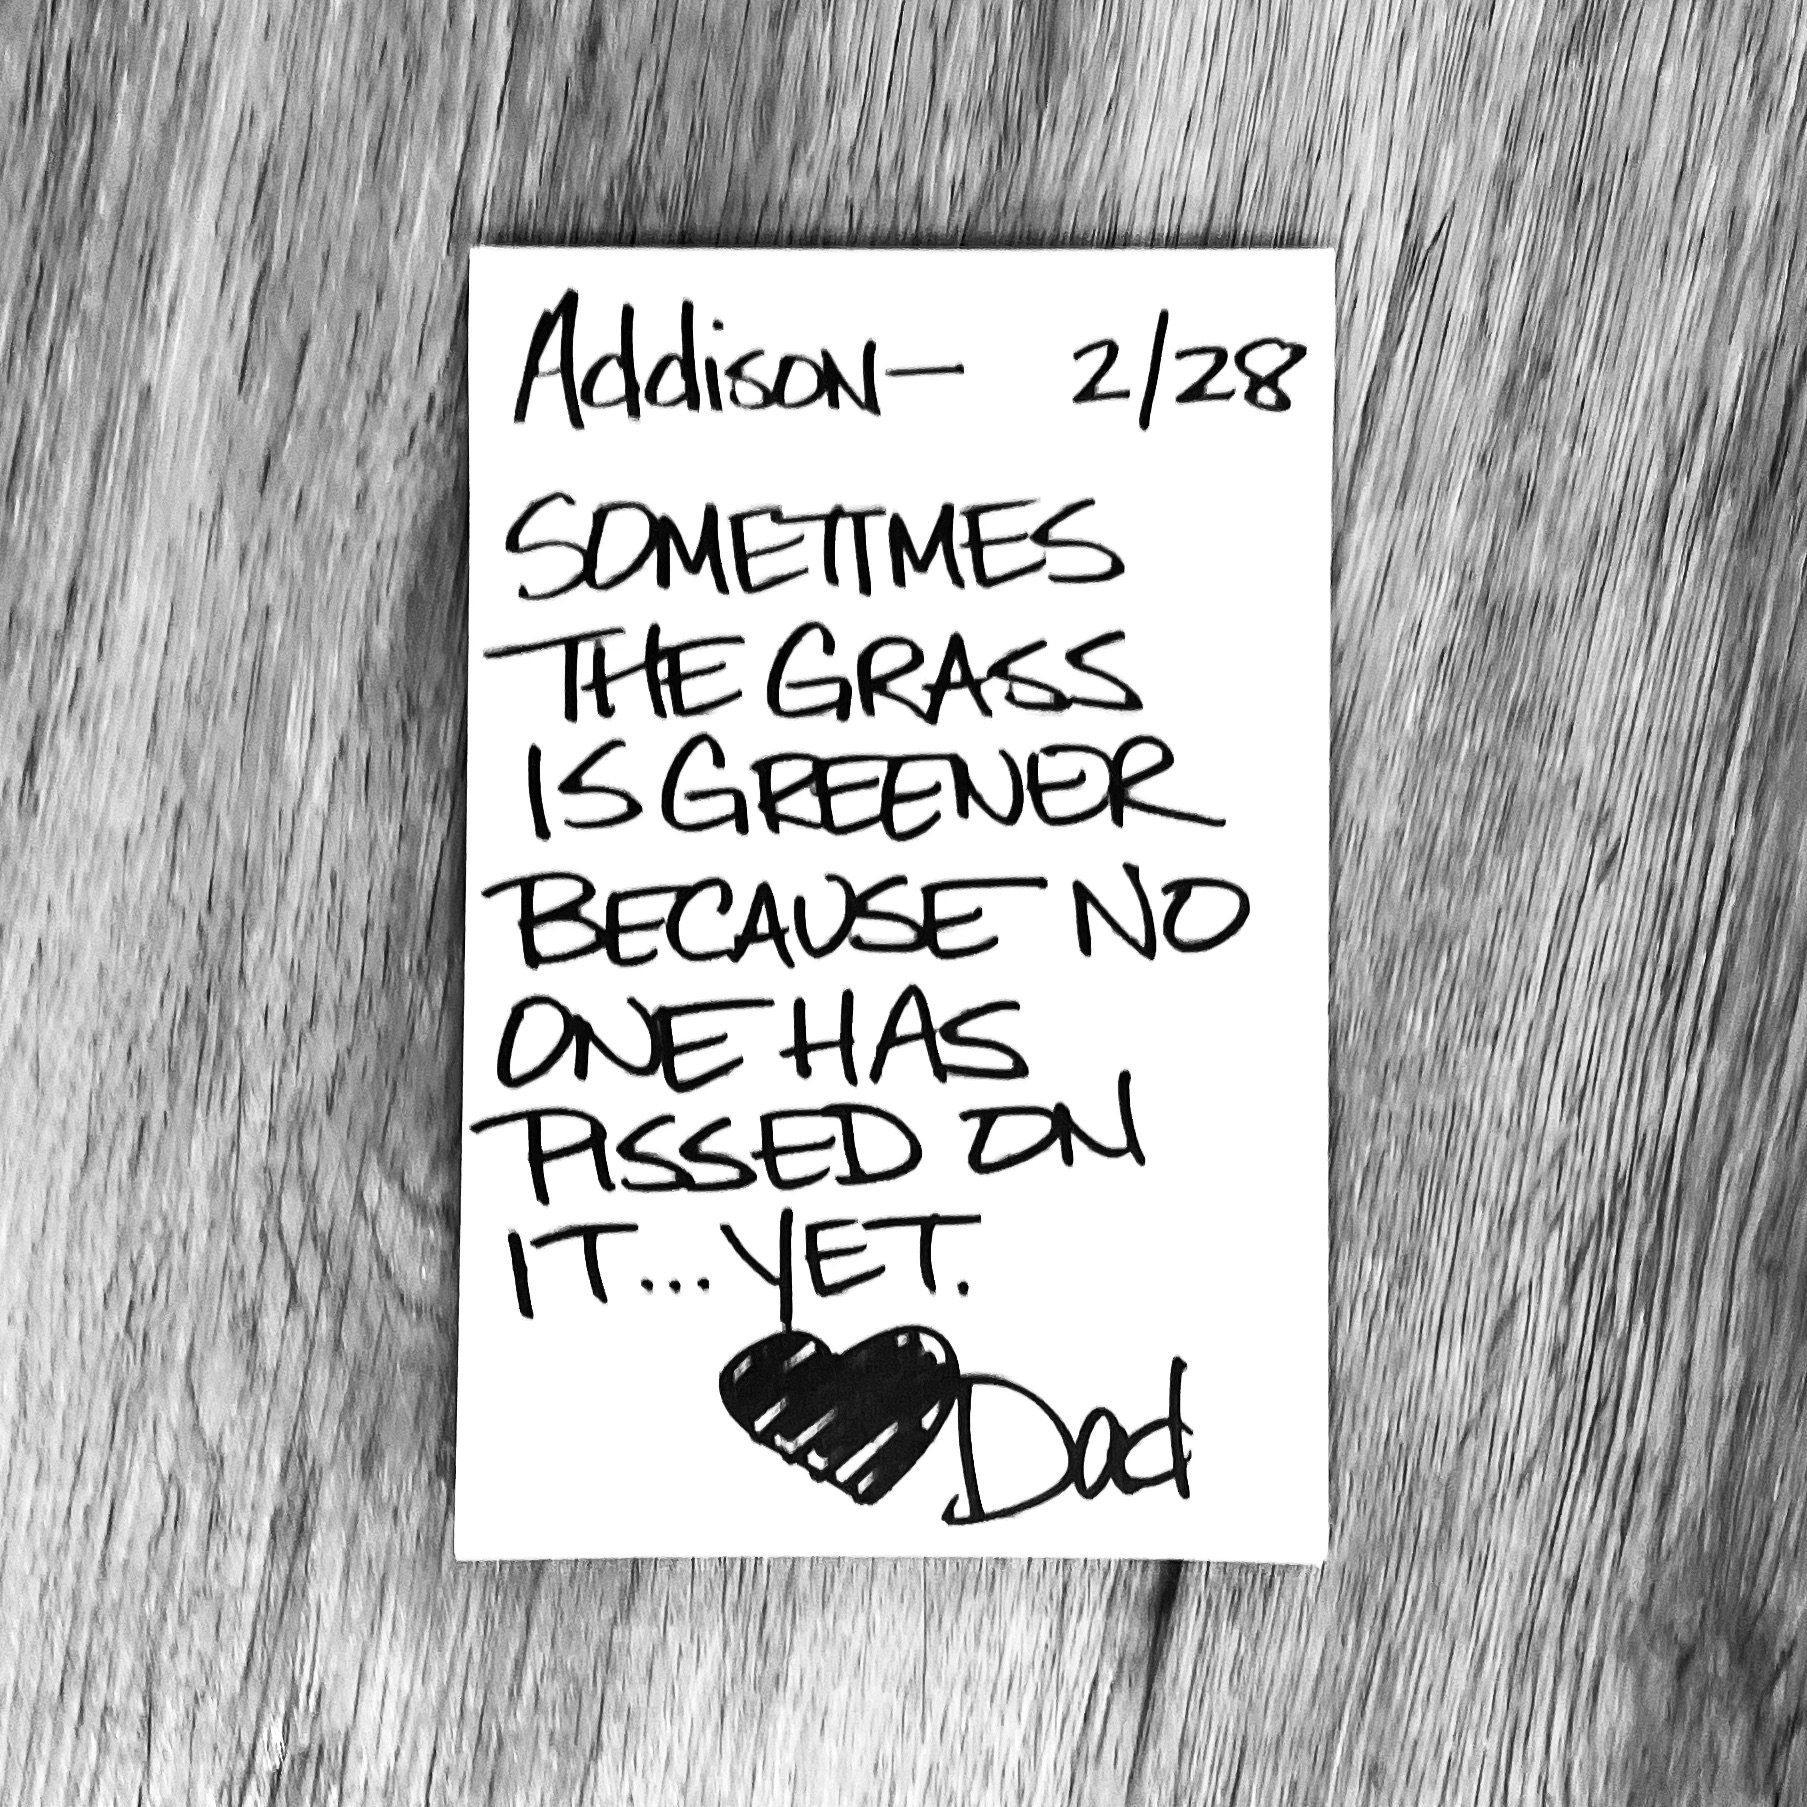 Addison— 2/28
SOMETIMES
THE GRASS
IS GREENER
BECAUSE NO
ONE HAS
PISSED ON
IT... YET.
Dad